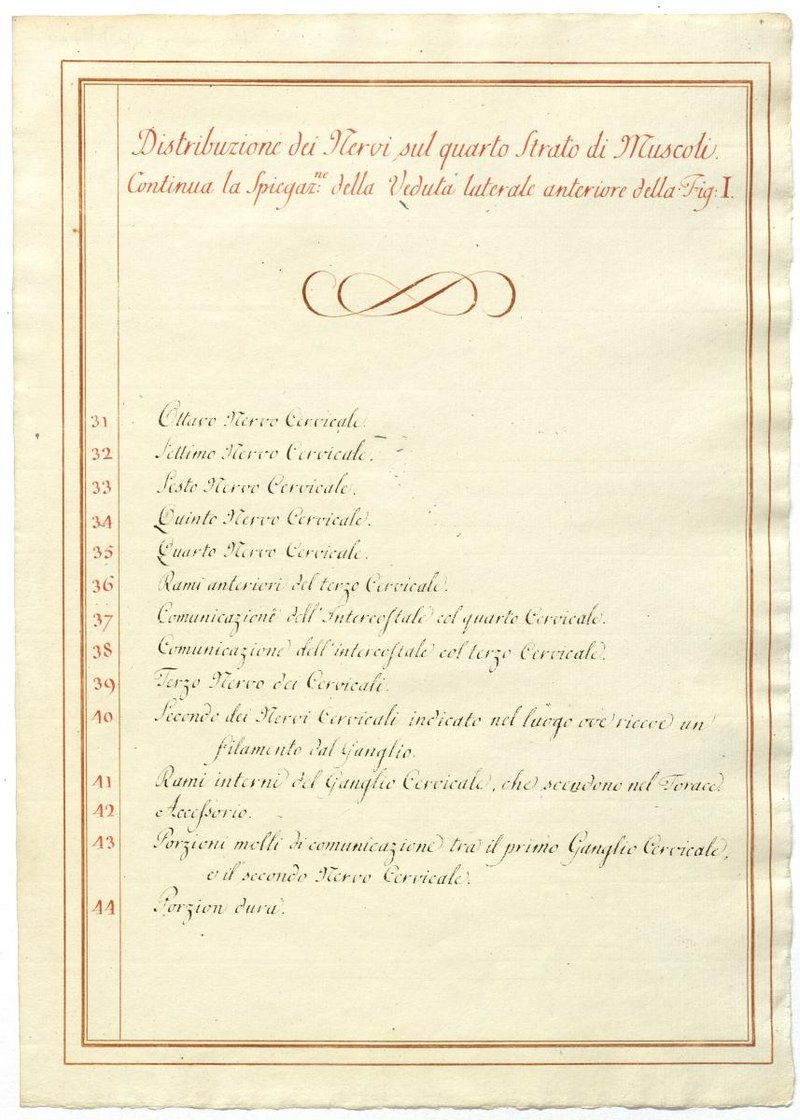 Distribuzione dei Nervi sul quarto Strato di Muscoli.
Continua la Spiegaz:ne della Veduta laterale anteriore della Fig: I.
31 Ottavo Nervo Cervicale.
32 Settimo Nervo Cervicale.
33 Sesto Nervo Cervicale.
34 Quinto Nervo Cervicale.
35 Quarto Nervo Cervicale.
36 Rami anteriori del terzo Cervicale.
37 Comunicazione dell'Intercostale col quarto Cervicale.
38 Comunicazione dell'intercostale col terzo Cervicale.
39 Terzo Nervo dei Cervicali.
40 Secondo dei Nervi Cervicali indicato nel luogo ove riceve un
filamento dal Ganglio.
41 Rami interni del Ganglio Cervicale, che scendono nel Torace.
42 Accessorio.
43 Porzioni molli di comunicazione tra il primo Ganglio Cervicale,
e il secondo Nervo Cervicale.
44 Porzion dura.